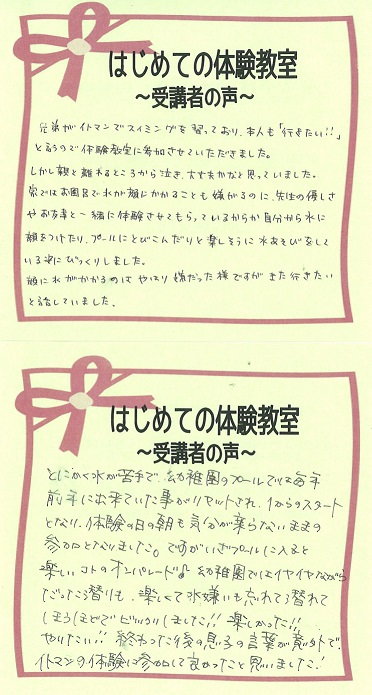 はじめての体験教室
～受講者の声～
兄弟がイトマンでスイミングを習っており、本人も「行きたい!!」
と言うので体験教室に参加させていただきました。
しかし親と離れるところから泣き、大丈夫かなと思っていました。
家ではお風呂で水が顔にかかることも嫌がるのに、先生の優しさ
やお友達と一緒に体験させてもらっているからか自分から水に
顔をつけたり、プールにとびこんだりと楽しそうに水あそびをして
いる姿にびっくりしました。
顔に水がかかるのは やはり 嫌だった様ですが また行きたい
と話していました。
はじめての体験教室
～受講者の声～
とにかく水が苦手で、幼稚園のプールでは毎年
前年に出来ていた事がリセットされ、1からのスタート
となり、体験の日の朝も気分が乗らないままの
参加となりました。ですがいざプールに入ると
楽しいコトのオンパレード♪ 幼稚園ではイヤイヤながら
だった潜りも、楽しくて水嫌いも忘れて潜れて
しまうほどでビックリしました!! 楽しかった!!
やりたい!! 終わった後の息子の言葉が意外で、
イトマンの体験に参加して良かったと思いました!